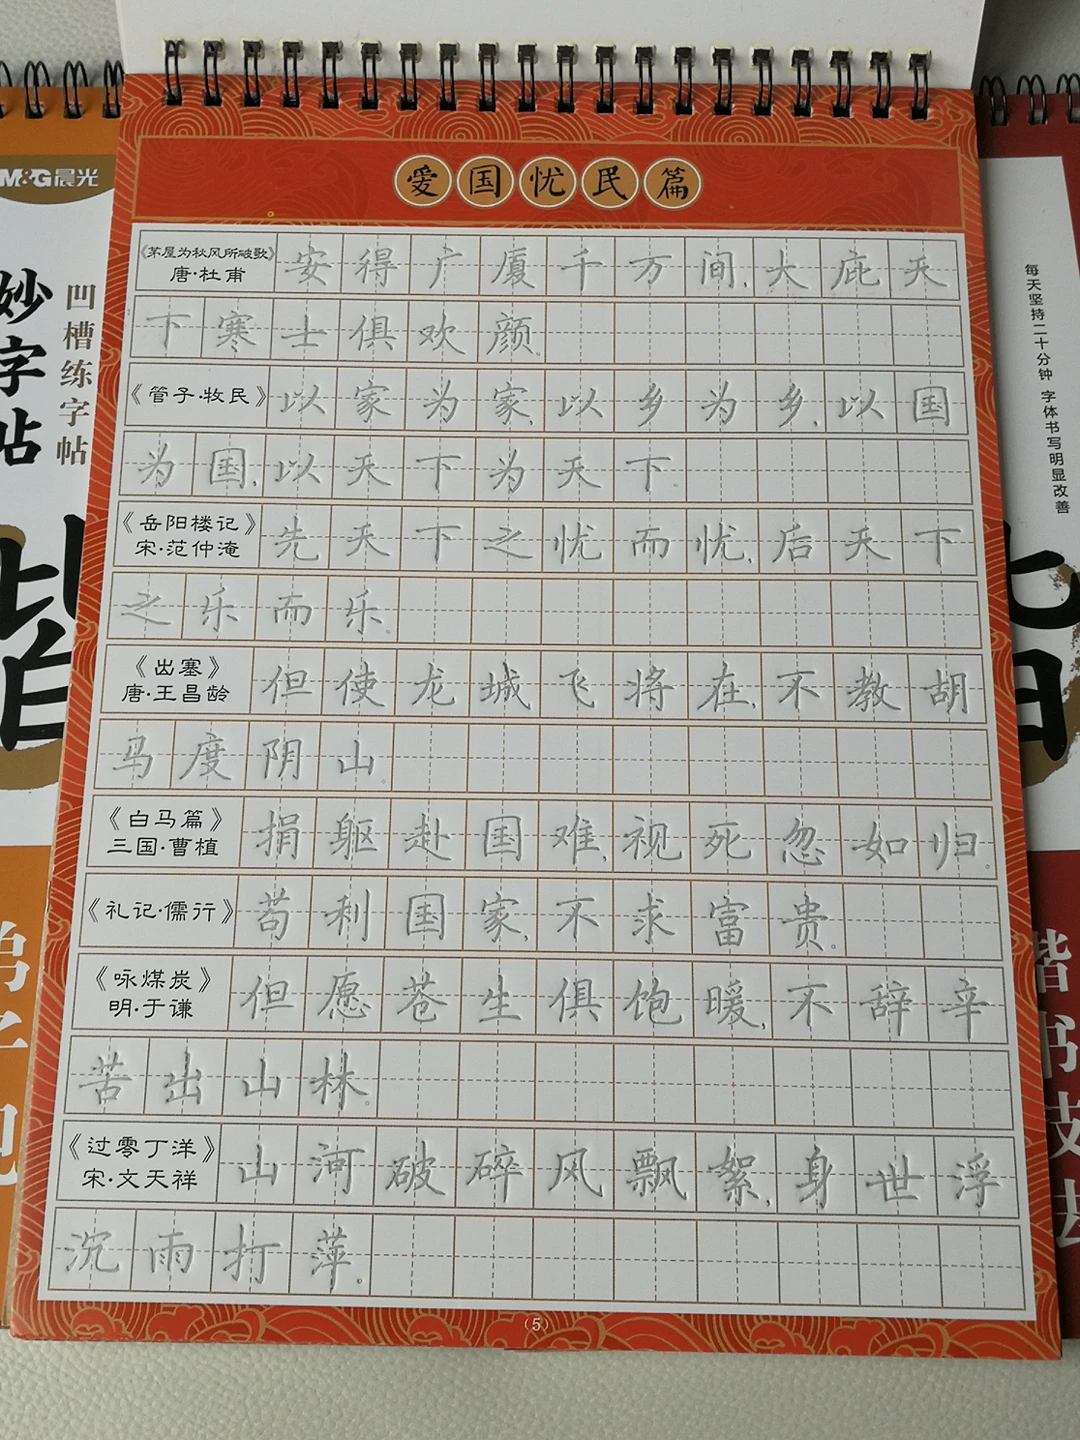 爱国忧民篇
《茅屋为秋风所破歌》
唐·杜甫
安得广厦千万间,大庇天
下寒士俱欢颜。
《管子·牧民》
以家为家,以乡为乡,以国
为国,以天下为天下。
《岳阳楼记》
宋·范仲淹
先天下之忧而忧,后天下
之乐而乐。
《出塞》
唐·王昌龄
但使龙城飞将在,不教胡
马度阴山。
《白马篇》
三国·曹植
捐躯赴国难,视死忽如归。
《礼记·儒行》
苟利国家,不求富贵。
《咏煤炭》
明·于谦
但愿苍生俱饱暖,不辞辛
苦出山林。
《过零丁洋》
宋·文天祥
山河破碎风飘絮,身世浮
沉雨打萍。
(5)
M&G晨光
妙字帖
凹槽练字帖
楷
每天坚持二十分钟 字体书写明显改善